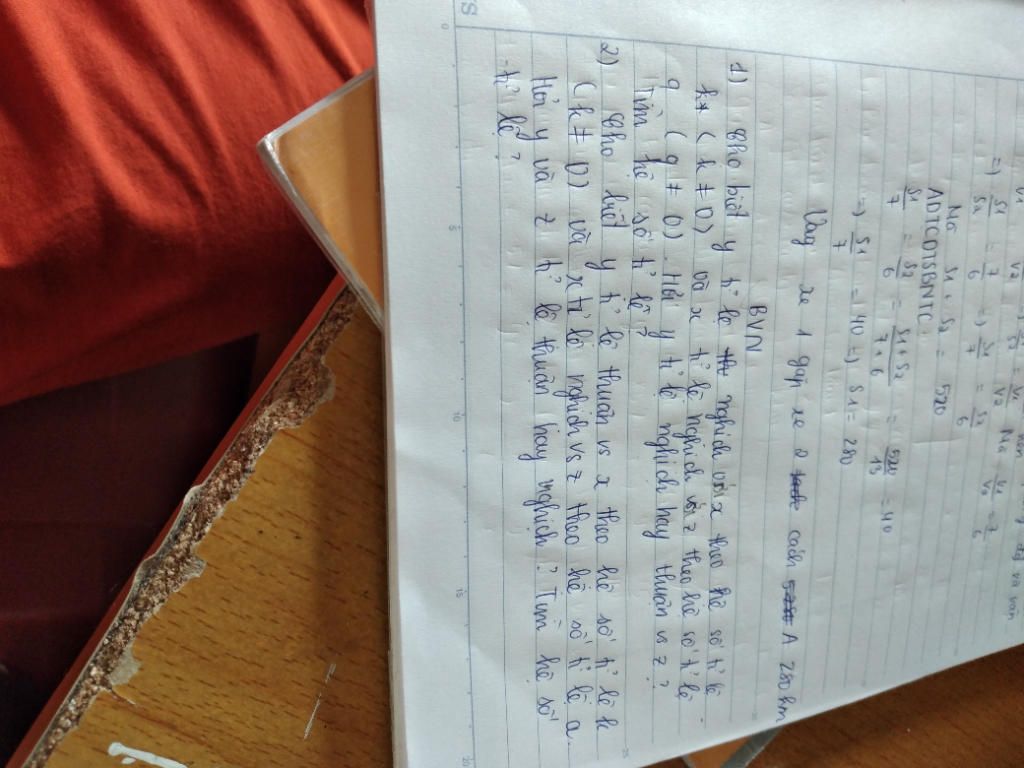 =) S1/S2 = 7/6 =) S1/7 = S2/6
Mà S1 + S2 = 520
ADTCDTSBNTC:
S1/7 = S2/6 = S1+S2/7+6 = 520/13 = 40
=) S1/7 = 40 =) S1 = 280
Vậy xe 1 gặp xe 2 cách A 280 km
BVN
1) Cho biết y tỉ lệ nghịch với x theo hệ số tỉ lệ
k (k ≠ 0) và x tỉ lệ nghịch với z theo hệ số tỉ lệ
q (q ≠ 0). Hỏi y tỉ lệ nghịch hay thuận vs z?
Tìm hệ số tỉ lệ?
2) Cho biết y tỉ lệ thuận vs x theo hệ số tỉ lệ k
(k ≠ 0) và x tỉ lệ nghịch vs z theo hệ số tỉ lệ a.
Hỏi y và z tỉ lệ thuận hay nghịch? Tìm hệ số
tỉ lệ?
S
0
5
10
15
20